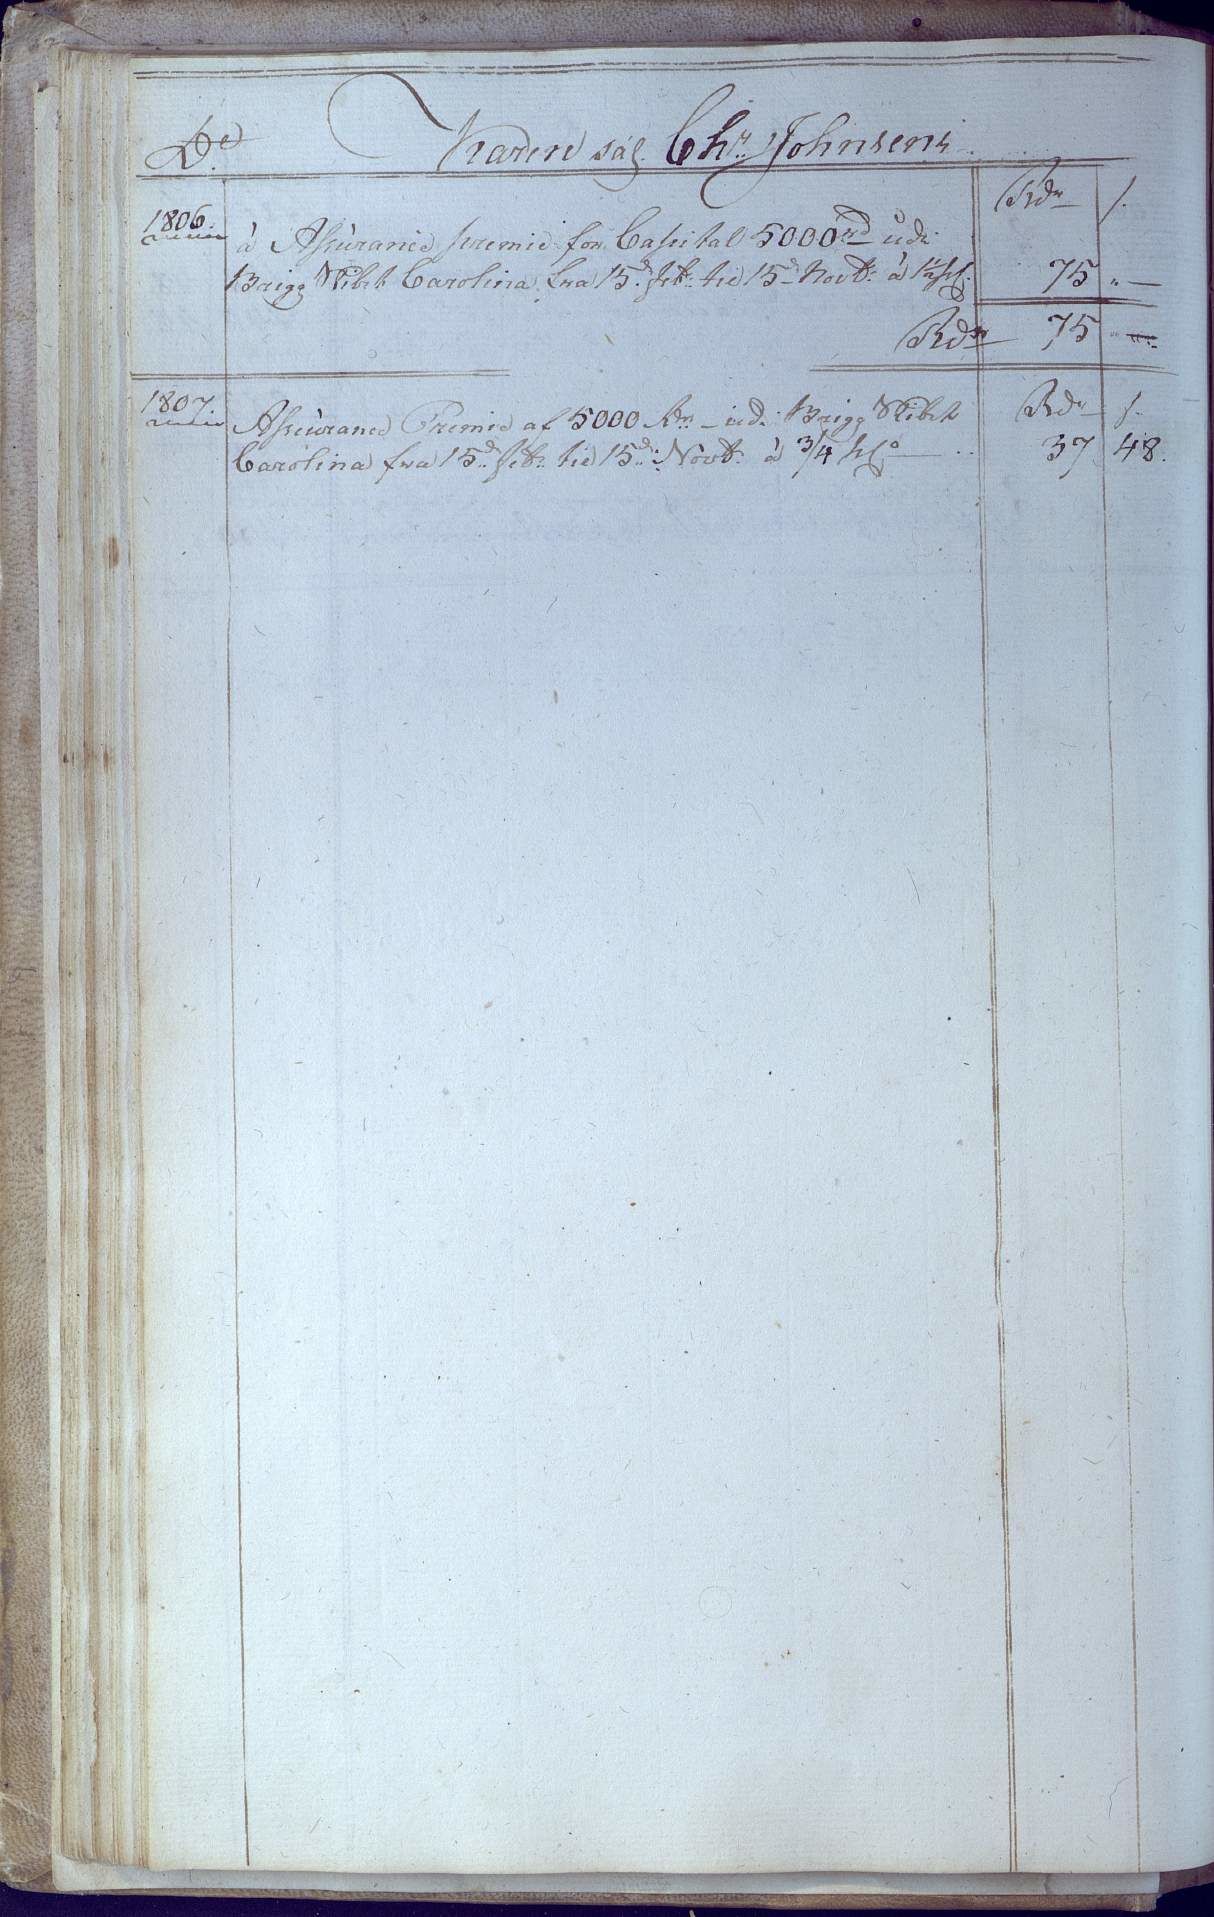 De Karen sal. Chr. Johnsens
Rdr s.
1806. à Assùrance premie for Capital 5000rd ùdi
Brigg Skibet Carolina fra 15d febr. til 15d Novbr. à 1½ pC. 75 " —
Rdr 75 " —
1807. Assùrance Premie af 5000 Rdr ùdi Brigg Skibet Rdr s.
Carolina fra 15d. febr. til 15d. Novbr. à 3/4 pCo 37 48.